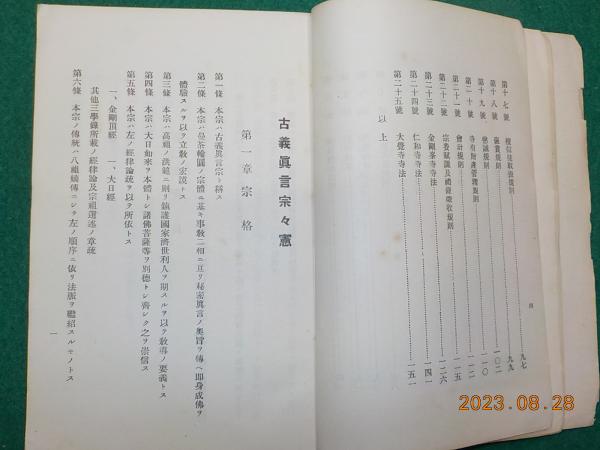 第十七號
第十八號
第十九號
第二十號 寺有財產管理規則
第二十一號 會計規則
第二十二號
第二十三號 金剛峯寺寺法
第二十四號 仁和寺寺法
第二十五號 大覺寺寺法
以上
九七
九九
一〇二
一一〇
一一五
一二六
一四一
一五一
古義眞言宗々憲
第一章 宗格
第一條 本宗ハ古義眞言宗ト稱ス
第二條 本宗ハ曼荼輪圓ノ宗體ニ基キ事敎二相ニ亘リ秘密眞言ノ奧旨ヲ傳ヘ卽身成佛ヲ
體驗スルヲ以テ立敎ノ宏謨トス
第三條 本宗ハ高祖ノ洪範ニ則リ鎭護國家濟世利人ヲ期スルヲ以テ敎導ノ要義トス
第四條 本宗ハ大日如來ヲ本體トシ諸佛菩薩等ヲ別德トシ齊シク之ヲ崇信ス
第五條 本宗ハ左ノ經律論疏ヲ以テ所依トス
一、金剛頂經 一、大日經
其他三學錄所載ノ經律論及宗祖選述ノ章疏
第六條 本宗ノ傳統ハ八祖嫡傳ニシテ左ノ順序ニ依リ法脈ヲ繼紹スルモノトス
一
2023.08.28